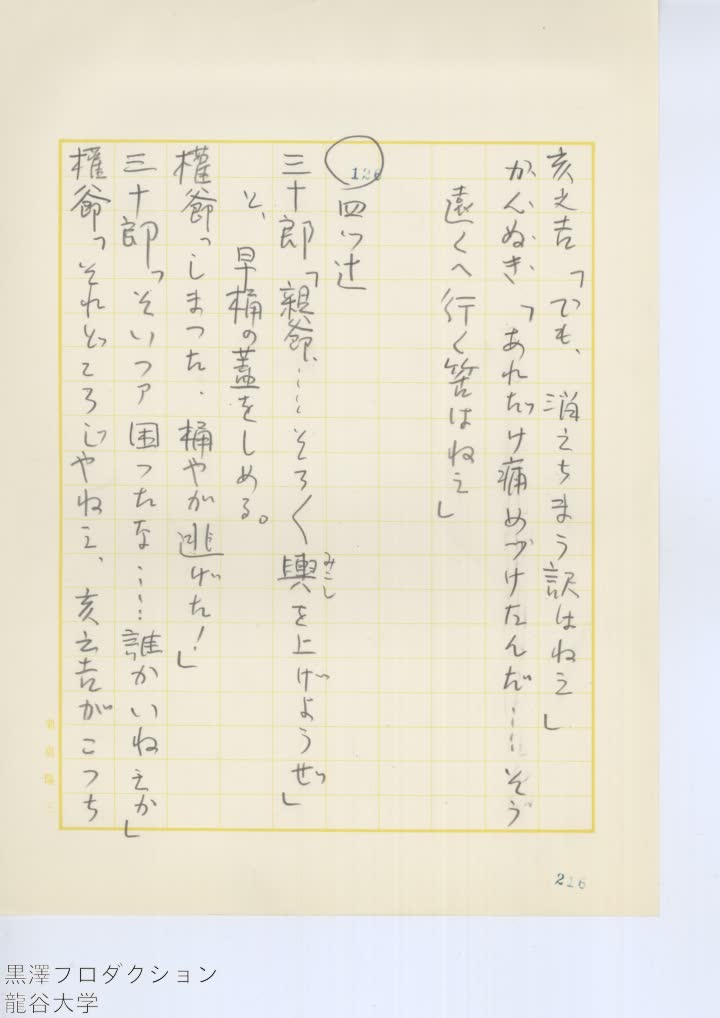 亥之吉「でも、消えちまう訳はねえ」
かんぬき「あれだけ痛めづけたんだ……そう
遠くへ行く筈はねえ」
126
四つ辻
三十郎「親爺、……そろ〱輿を上げようぜ」
みこし
と、早桶の蓋をしめる。
權爺「しまった．桶やが逃げた！」
三十郎「そいつァ困ったな……誰かいねえか」
權爺「それどころじやねえ、亥之吉がこっち
226
黒澤プロダクション
龍谷大学